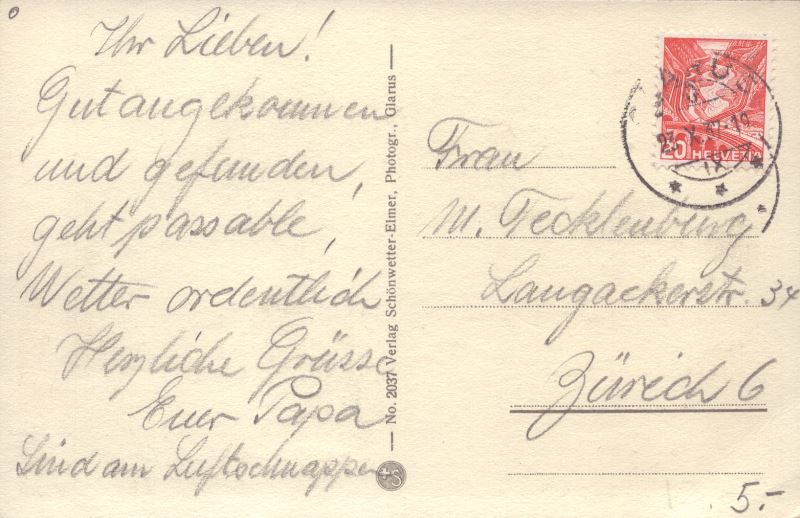 Ihr Lieben!
Gut angekommen
und gefunden,
geht passable,
Wetter ordentlich
Herzliche Grüsse
Euer Papa
Sind am Luftschnappen
— No. 2037 Verlag Schönwetter-Elmer, Photogr., Glarus —
+S
20 HELVETIA
IX
Frau
M. Tecklenburg
Langackerstr. 34
Zürich 6
5.-